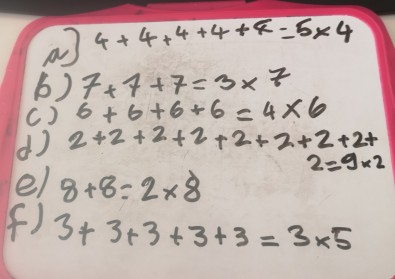 a) 4 + 4 + 4 + 4 + 4 = 5 x 4
b) 7 + 7 + 7 = 3 x 7
c) 6 + 6 + 6 + 6 = 4 x 6
d) 2 + 2 + 2 + 2 + 2 + 2 + 2 + 2 +
2 = 9 x 2
e) 8 + 8 = 2 x 8
f) 3 + 3 + 3 + 3 + 3 = 3 x 5